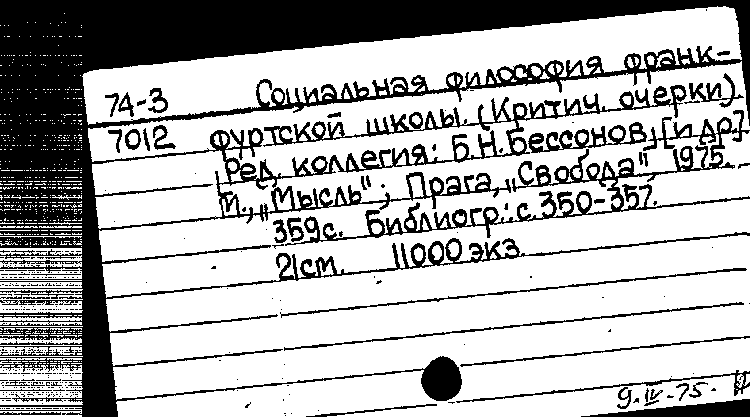 74-3 Социальная философия франк-
7012 фуртской школы. (Критич. очерки).
[Ред. коллегия: Б.Н.Бессонов, [и др.]
М., „Мысль"; Прага, „Свобода", 1975.
359с. Библиогр.: с. 350-357.
21см. 11000 экз.
9.IV-75.